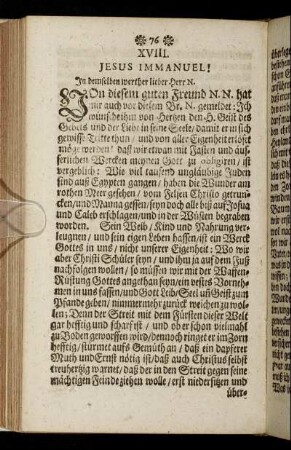 76
XVIII.
JESUS IMMANUEL!
In demselben werther lieber Herr N.
VOn diesem guten Freund N. N. hat
mir auch vor diesem Br. N. gemeldet: Ich
wünsche ihm von Hertzen den H. Geist des
Gebets und der Liebe in seine Seele/ damit er in sich
gewisse Tritte thun/ und von aller Eigenheit erlöset
möge werden! daß wir etwan mit Fasten und äus-
serlichen Wercken meynen Gott zu obligiren/ ist
vergeblich: Wie viel tausend ungläubige Juden
sind aus Egypten gangen/ haben die Wunder am
rothen Meer gesehen/ vom Felsen Christo getrun-
cken/ und Manna gessen/ seyn doch alle biß auf Josua
und Caleb erschlagen/ und in der Wüsten begraben
worden. Sein Weib/ Kind und Nahrung ver-
leugnen/ und sein eigen Leben hassen/ ist ein Werck
Gottes in uns/ nicht unserer Eigenheit: Wo wir
aber Christi Schüler seyn/ und ihm ja auf dem Fuß
nachfolgen wollen/ so müssen wir mit der Waffen-
Rüstung Gottes angethan seyn/ ein vestes Vorneh-
men in uns fassen/ und Gott Leib/ Seel un Geist zum
Pfande geben/ nimmermehr zurück weichen zu wol-
len; Denn der Streit mit dem Fürsten dieser Welt
gar hefftig und scharf ist/ und ob er schon vielmahl
zu Boden geworffen wird/ dennoch ringet er im Zorn
hefftig/ stürmet aufs Gemüth an/ daß ein dapferer
Muth und Ernst nötig ist/ daß auch Christus selbst
treuhertzig warnet/ daß der in den Streit gegen seine
mächtigen Feinde ziehen wolle/ erst niedersitzen und
über-